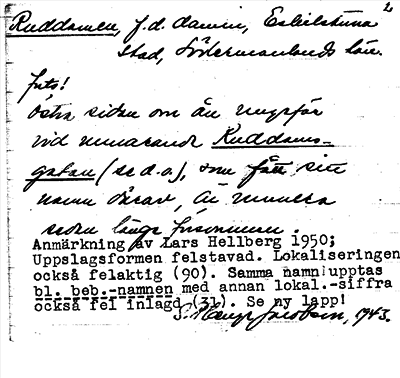 Ruddammen, f.d. damm, Eskilstuna 2
stad, Södermanlands län.
Obs!
Östra sidan om ån ungefär
vid nuvarande Ruddams-
gatan (se d.o.), som fått sitt
namn därav, är numera
sedan länge försvunnen.
Anmärkning av Lars Hellberg 1950;
Uppslagsformen felstavad. Lokaliseringen
också felaktig (90). Samma namn upptas
bl. beb.-namnen med annan lokal.-siffra
också fel inlagd (31). Se ny lapp!
Jacobson, 1943.